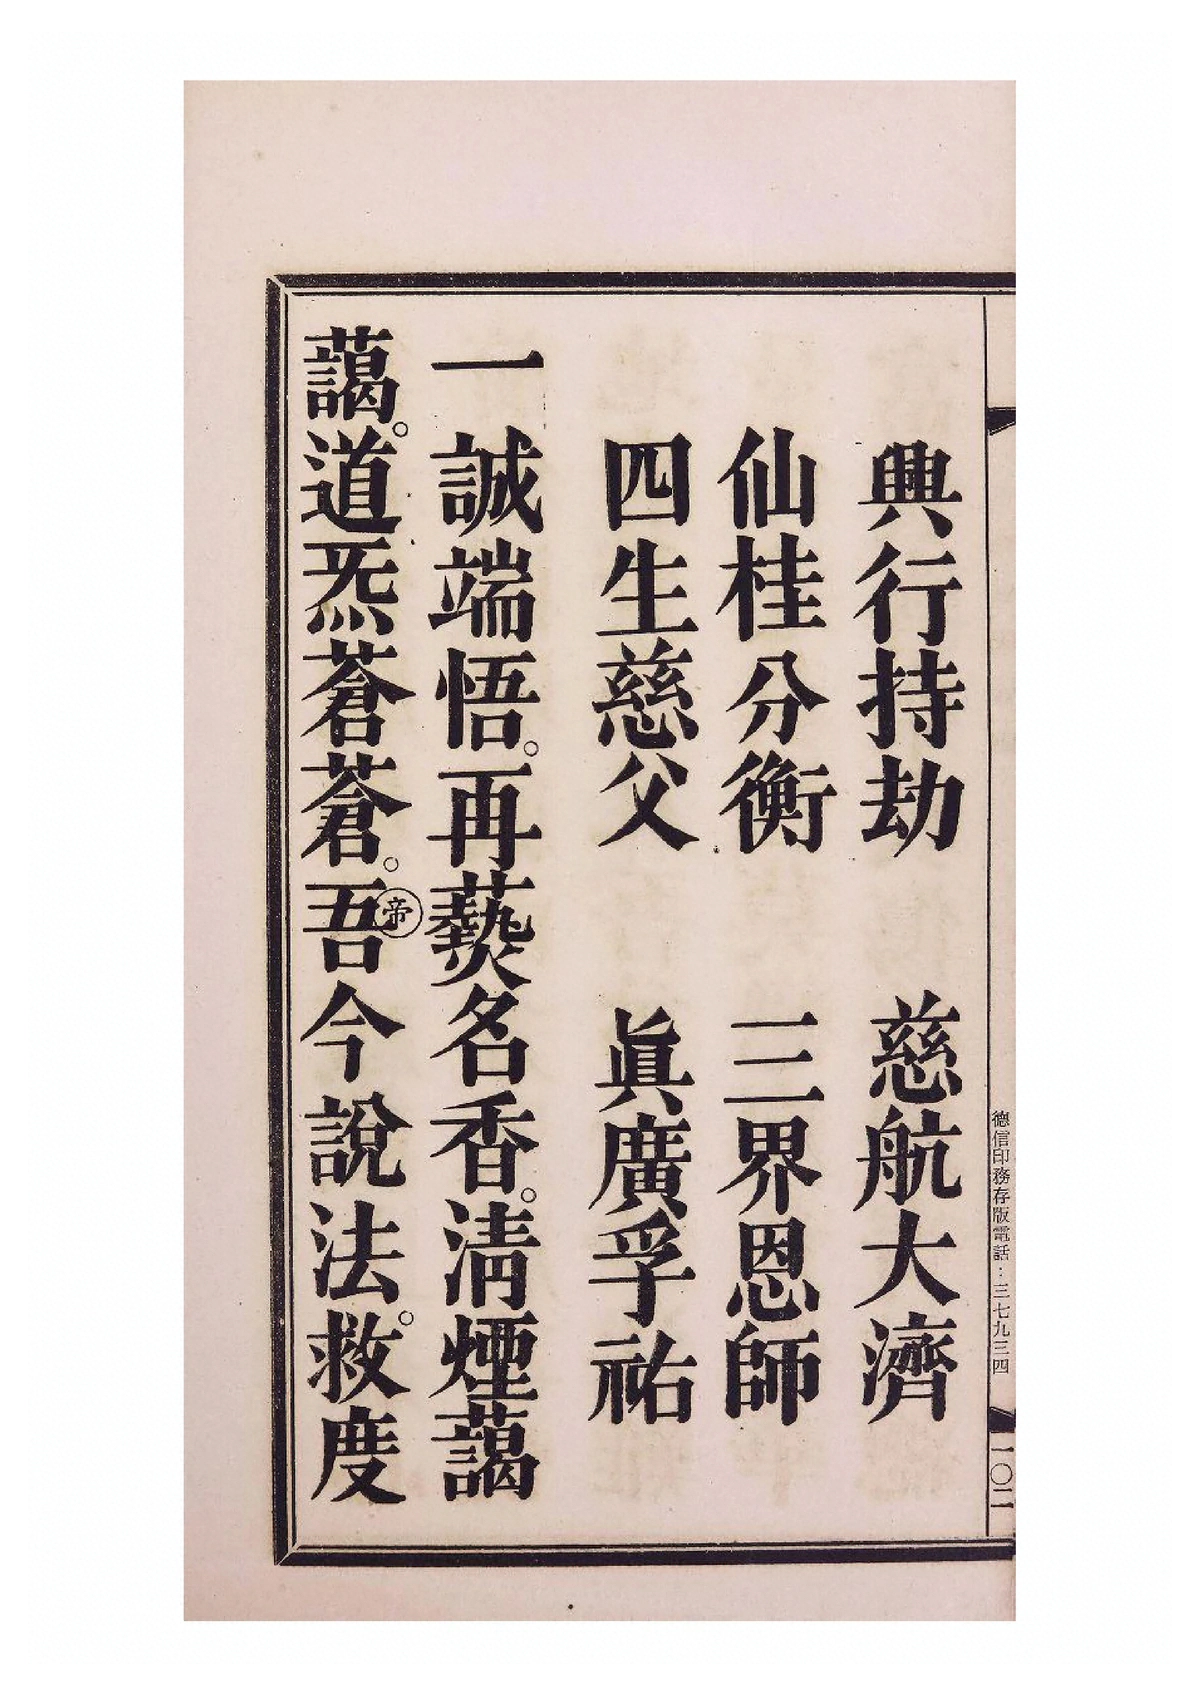 德信印務存版電話：三七九三四
一〇二
興行持劫　慈航大濟
仙桂分衡　三界恩師
四生慈父　眞廣孚祐
一誠端悟。再爇名香。淸煙藹
藹。道炁蒼蒼。㊞帝吾今說法。救度